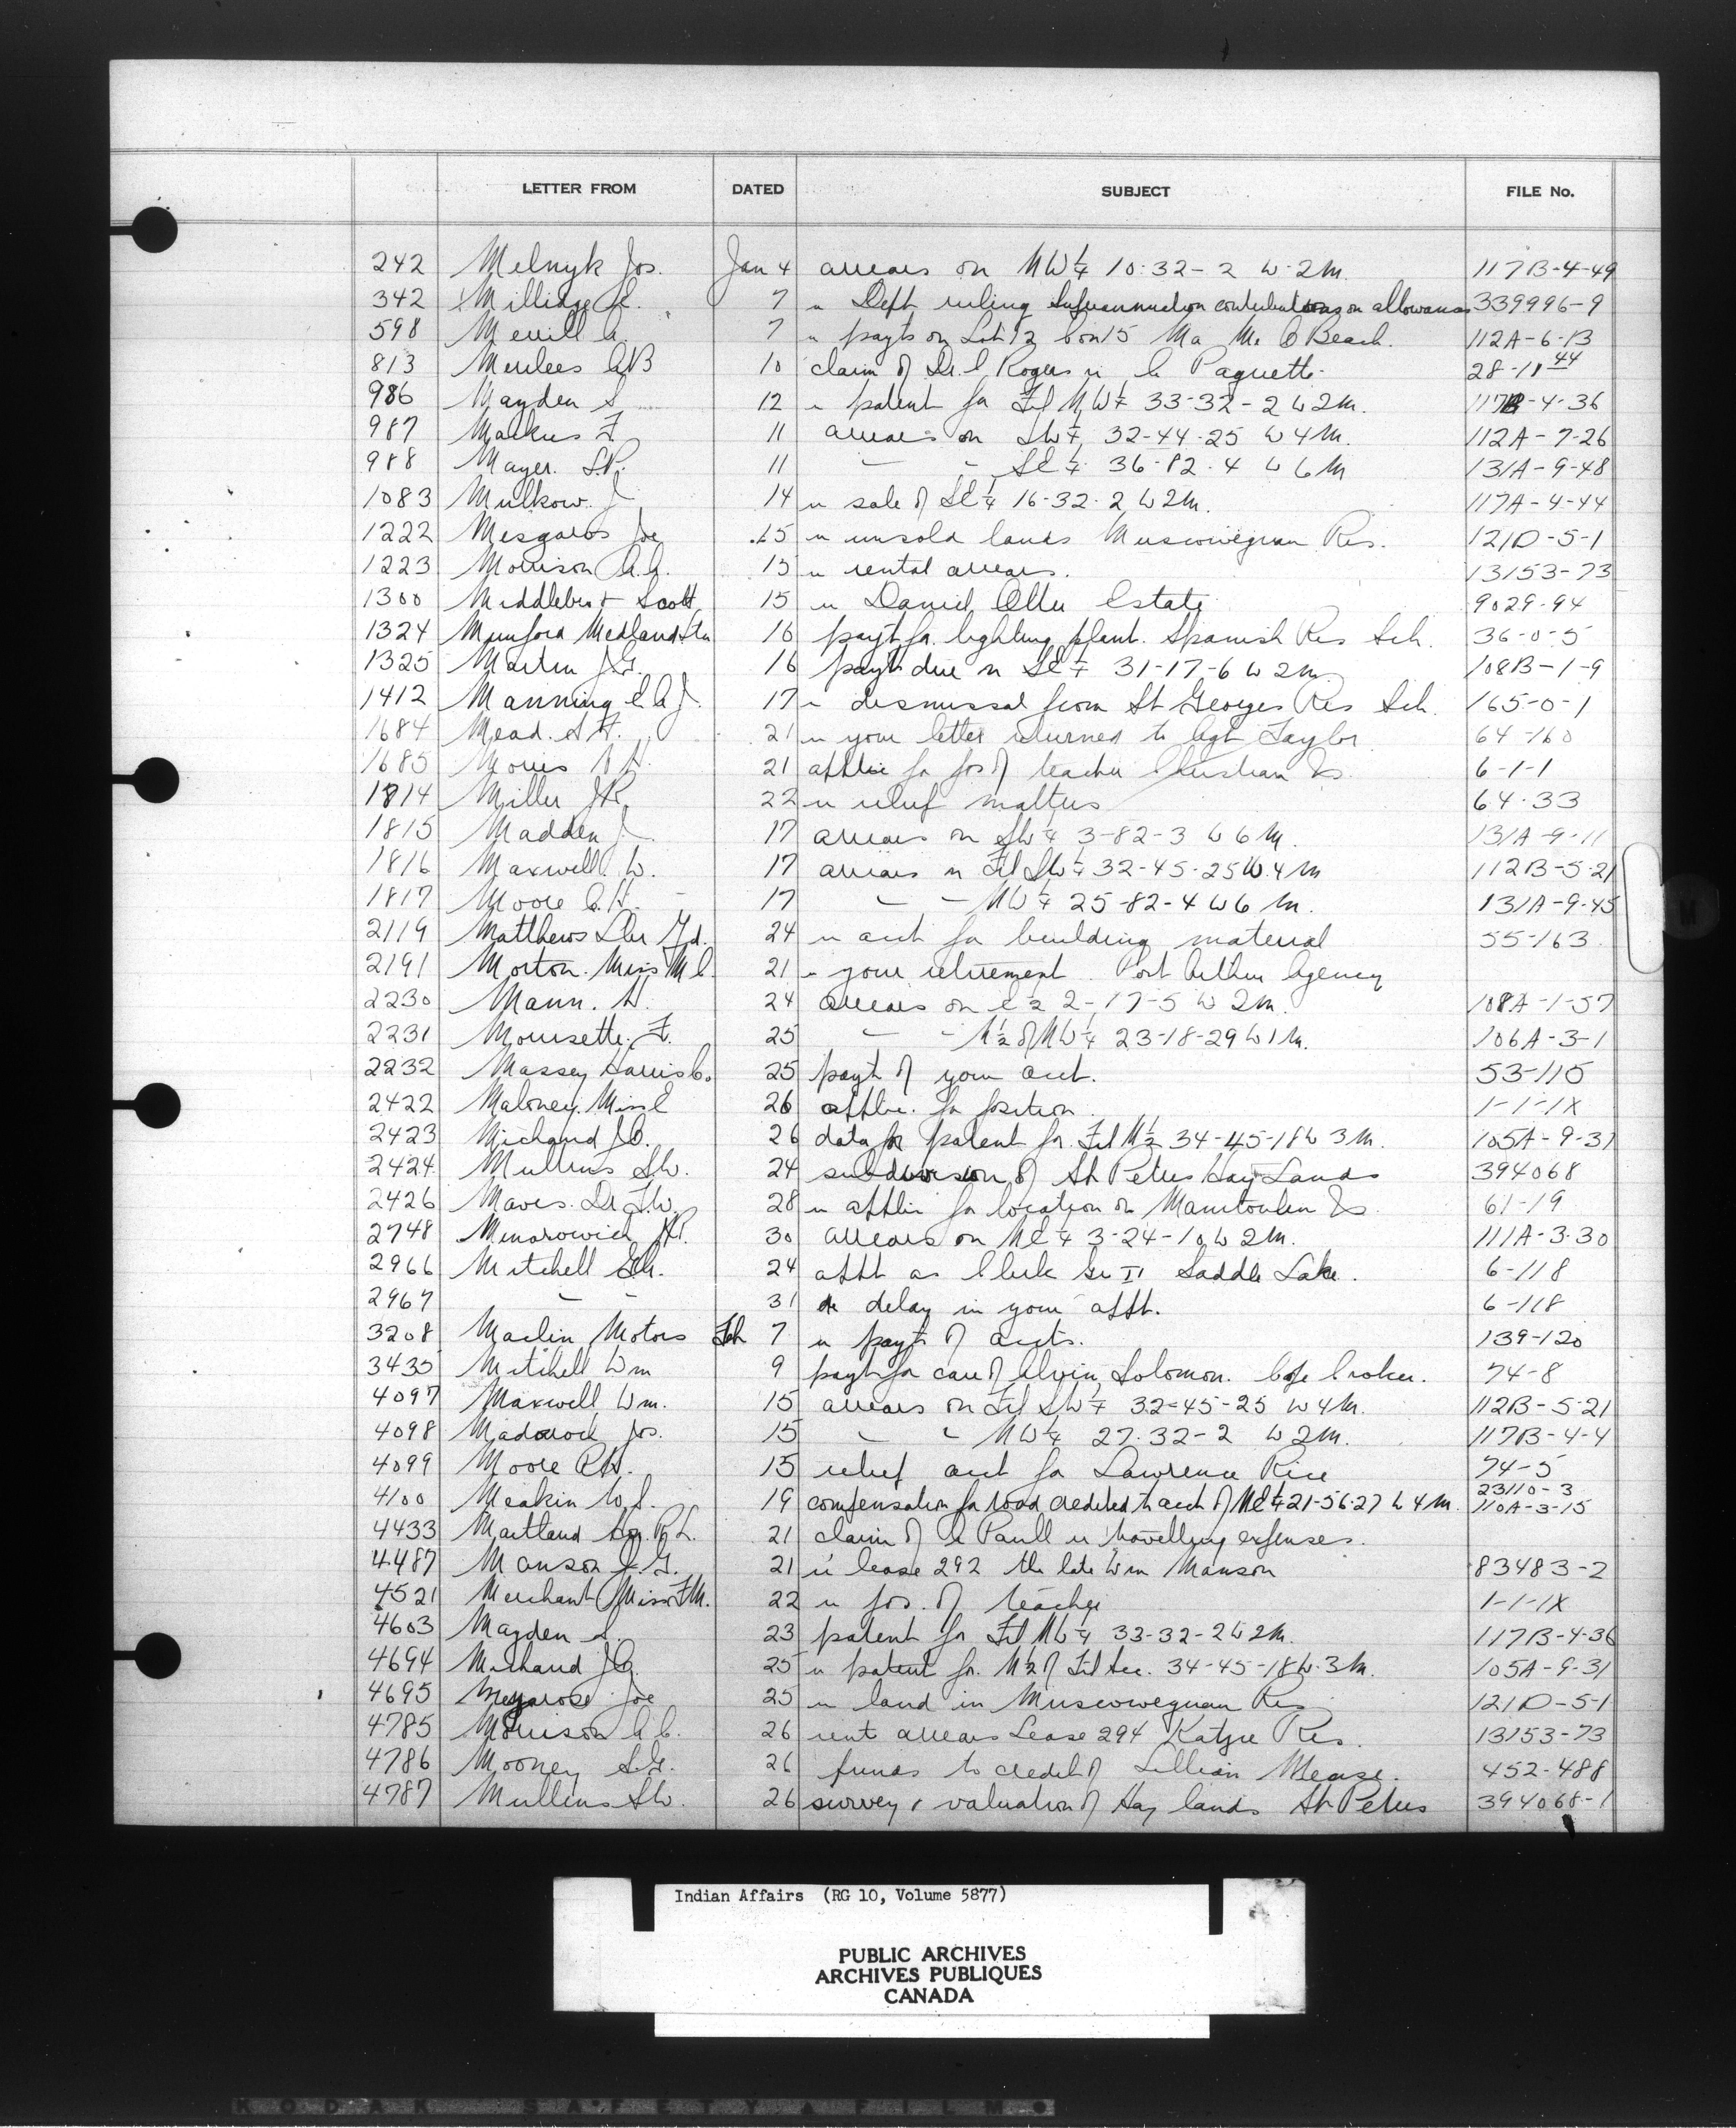 LETTER FROM DATED SUBJECT FILE No.
242 Melnyk Jos. Jan 4 arrears on NW¼ 10-32-2 W 2M. 117B-4-49
342 Millidge 7 re Dept ruling Superannuation contributions on allowances 339996-9
598 Merrill A. 7 re payts on Lot 12 Con 15 Beach. 112A-6-13
813 Merilees 10 claim of Dr. Rogers re Paquette 28-11 44
986 Mayden S 12 re patent for Frl NW¼ 33-32-2 W 2M. 117B-4-36
987 Markus F. 11 arrears on SW¼ 32-44-25 W 4M. 112A-7-26
988 Mayer. 11 " " SE¼ 36-82-4 W 6M 131A-9-48
1083 Mulkow J 14 re sale of SE¼ 16-32-2 W 2M. 117A-4-44
1222 Joe 15 re unsold lands Muscowequan Res. 121D-5-1
1223 Morrison 15 re rental arrears. 13153-73
1300 Scott 15 re Daniel Estate 9029-94
1324 Mumford Medland Ltd 16 payt for lighting plant. Spanish Res Sch. 36-0-5
1325 Martin J.G. 16 payt due on SE¼ 31-17-6 W 2M 108B-1-9
1412 Manning E.A.J. 17 re dismissal from St Georges Res Sch. 165-0-1
1684 Mead. 21 re your letter returned to Agt Taylor 64-160
1685 Morris 21 applic for pos of teacher Christian Is. 6-1-1
1814 Miller J.R. 22 re relief matters 64-33
1815 Madden J 17 arrears on SW¼ 3-82-3 W 6M. 131A-9-11
1816 Maxwell W. 17 arrears on Frl SW¼ 32-45-25 W. 4M 112B-5-21
1817 Moore 17 " " NW¼ 25-82-4 W 6M. 131A-9-45
2119 Matthews Lbr Yd. 24 re acct for building material 55-163
2191 Morton. Miss M 21 re your retirement. Port Arthur Agency
2230 Mann. 24 arrears on E½ 2-17-5 W 2M. 108A-1-57
2231 Morrisette. F. 25 " " N½ of NW¼ 23-18-29 W 1M. 106A-3-1
2232 Massey Harris Co. 25 payt of your acct. 53-115
2422 Maloney. Miss E 26 applic. for position. 1-1-1X
2423 Michaud 26 data for patent for Frl N½ 34-45-18 W 3M. 105A-9-31
2424 Mullins S.W. 24 subdivision of St Peters Hay Lands 394068
2426 Maves. Dr F.W. 28 re applic for location on Manitoulin Is. 61-19
2748 30 arrears on NE¼ 3-24-10 W 2M. 111A-3-30
2966 Mitchell 24 appt as Clerk Gr II Saddle Lake. 6-118
2967 " " 31 re delay in your appt. 6-118
3208 Marlin Motors Feb 7 re payt of accts. 139-120
3435 Mitchell Wm 9 payt for care of Alvin Solomon. Cape Croker. 74-8
4097 Maxwell Wm. 15 arrears on Frl SW¼ 32-45-25 W 4M. 112B-5-21
4098 Jos. 15 " " NW¼ 27-32-2 W 2M. 117B-4-4
4099 Moore 15 relief acct for Lawrence Rice 74-5
4100 Meakin W.S. 19 compensation for road credited to acct of NE¼ 21-56-27 W 4M. 23110-3 110A-3-15
4433 Maitland Hon. R.L. 21 claim of Paull re travelling expenses.
4487 Manson J.G. 21 re lease 292 the late Wm Manson 83483-2
4521 Merchant Miss F.M. 22 re pos. of teacher 1-1-1X
4603 Mayden S. 23 patent for Frl NW¼ 33-32-2 W 2M. 117B-4-36
4694 Michaud 25 re patent for N½ of Frl Sec. 34-45-18 W. 3M. 105A-9-31
4695 Joe 25 re land in Muscowequan Res 121D-5-1
4785 Morrison 26 rent arrears Lease 294 Katzie Res. 13153-73
4786 Mooney 26 funds to credit of Lillian Mease. 452-488
4787 Mullins S.W. 26 survey & valuation of Hay lands St Peters 394068-1
Indian Affairs (RG 10, Volume 5877)
PUBLIC ARCHIVES
ARCHIVES PUBLIQUES
CANADA
KODAK SAFETY FILM